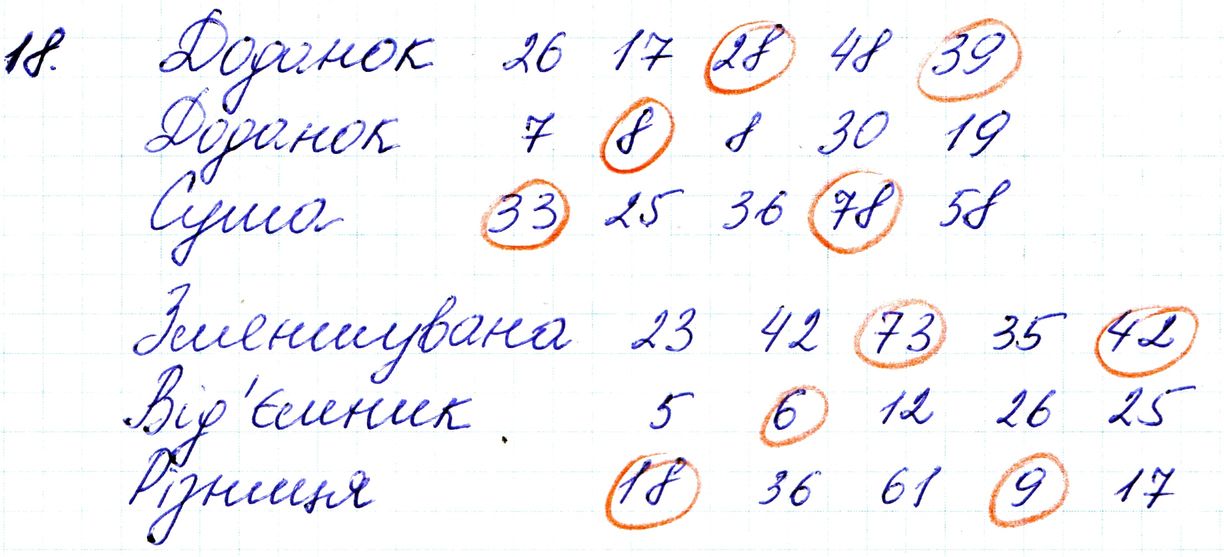 18. Доданок 26 17 28 48 39
Доданок 7 8 8 30 19
Сума 33 25 36 78 58
Зменшувана 23 42 73 35 42
Від'ємник 5 6 12 26 25
Різниця 18 36 61 9 17